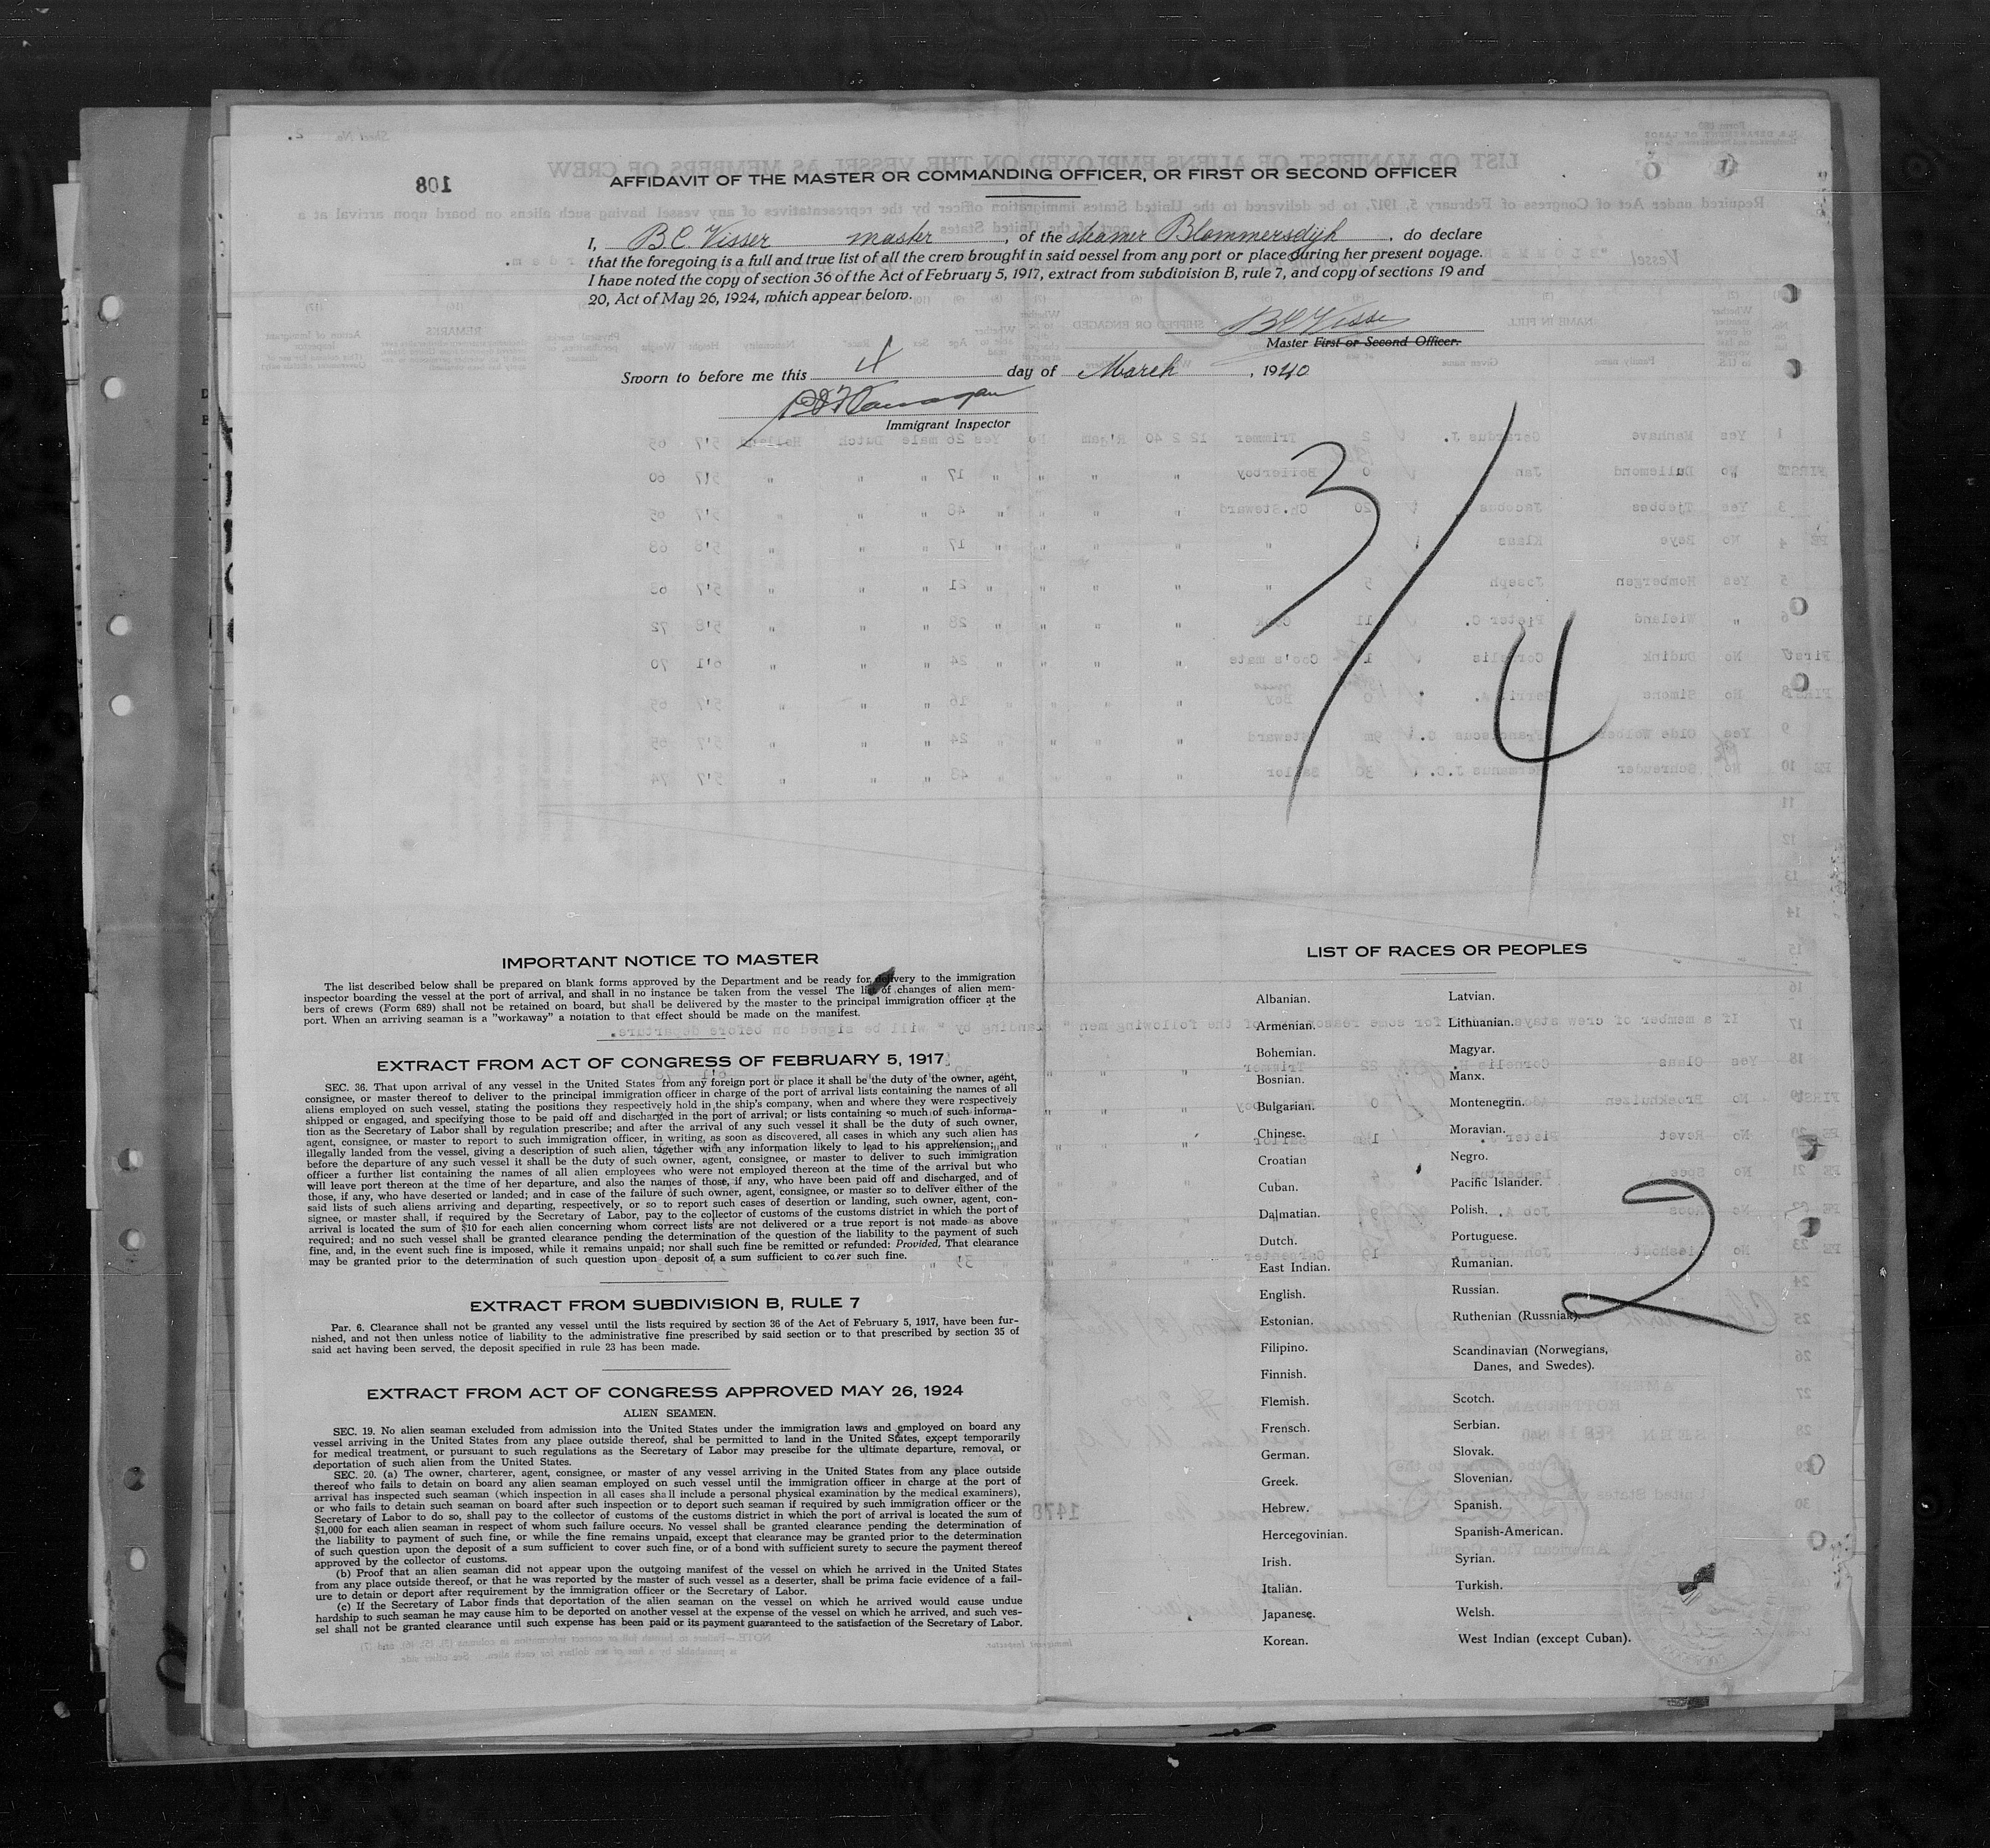 AFFIDAVIT OF THE MASTER OR COMMANDING OFFICER, OR FIRST OR SECOND OFFICER
108
I, B.C. Visser master, of the steamer Blommersdyk, do declare
that the foregoing is a full and true list of all the crew brought in said vessel from any port or place during her present voyage.
I have noted the copy of section 36 of the Act of February 5, 1917, extract from subdivision B, rule 7, and copy of sections 19 and
20, Act of May 26, 1924, which appear below.
BC Visser
Master First or Second Officer.
Sworn to before me this 4 day of March, 1940
Immigrant Inspector
3/4
IMPORTANT NOTICE TO MASTER
The list described below shall be prepared on blank forms approved by the Department and be ready for delivery to the immigration
inspector boarding the vessel at the port of arrival, and shall in no instance be taken from the vessel The list of changes of alien mem-
bers of crews (Form 689) shall not be retained on board, but shall be delivered by the master to the principal immigration officer at the
port. When an arriving seaman is a "workaway" a notation to that effect should be made on the manifest.
EXTRACT FROM ACT OF CONGRESS OF FEBRUARY 5, 1917
SEC. 36. That upon arrival of any vessel in the United States from any foreign port or place it shall be the duty of the owner, agent,
consignee, or master thereof to deliver to the principal immigration officer in charge of the port of arrival lists containing the names of all
aliens employed on such vessel, stating the positions they respectively hold in the ship's company, when and where they were respectively
shipped or engaged, and specifying those to be paid off and discharged in the port of arrival; or lists containing so much of such informa-
tion as the Secretary of Labor shall by regulation prescribe; and after the arrival of any such vessel it shall be the duty of such owner,
agent, consignee, or master to report to such immigration officer, in writing, as soon as discovered, all cases in which any such alien has
illegally landed from the vessel, giving a description of such alien, together with any information likely to lead to his apprehension; and
before the departure of any such vessel it shall be the duty of such owner, agent, consignee, or master to deliver to such immigration
officer a further list containing the names of all alien employees who were not employed thereon at the time of the arrival but who
will leave port thereon at the time of her departure, and also the names of those, if any, who have been paid off and discharged, and of
those, if any, who have deserted or landed; and in case of the failure of such owner, agent, consignee, or master so to deliver either of the
said lists of such aliens arriving and departing, respectively, or so to report such cases of desertion or landing, such owner, agent, con-
signee, or master shall, if required by the Secretary of Labor, pay to the collector of customs of the customs district in which the port of
arrival is located the sum of $10 for each alien concerning whom correct lists are not delivered or a true report is not made as above
required; and no such vessel shall be granted clearance pending the determination of the question of the liability to the payment of such
fine, and, in the event such fine is imposed, while it remains unpaid; nor shall such fine be remitted or refunded: Provided, That clearance
may be granted prior to the determination of such question upon deposit of a sum sufficient to cover such fine.
EXTRACT FROM SUBDIVISION B, RULE 7
Par. 6. Clearance shall not be granted any vessel until the lists required by section 36 of the Act of February 5, 1917, have been fur-
nished, and not then unless notice of liability to the administrative fine prescribed by said section or to that prescribed by section 35 of
said act having been served, the deposit specified in rule 23 has been made.
EXTRACT FROM ACT OF CONGRESS APPROVED MAY 26, 1924
ALIEN SEAMEN.
SEC. 19. No alien seaman excluded from admission into the United States under the immigration laws and employed on board any
vessel arriving in the United States from any place outside thereof, shal be permitted to land in the United States, except temporarily
for medical treatment, or pursuant to such regulations as the Secretary of Labor may prescibe for the ultimate departure, removal, or
deportation of such alien from the United States.
SEC. 20. (a) The owner, charterer, agent, consignee, or master of any vessel arriving in the United States from any place outside
thereof who fails to detain on board any alien seaman employed on such vessel until the immigration officer in charge at the port of
arrival has inspected such seaman (which inspection in all cases shall include a personal physical examination by the medical examiners),
or who fails to detain such seaman on board after such inspection or to deport such seaman if required by such immigration officer or the
Secretary of Labor to do so, shall pay to the collector of customs of the customs district in which the port of arrival is located the sum of
$1,000 for each alien seaman in respect of whom such failure occurs. No vessel shall be granted clearance pending the determination of
the liability to payment of such fine, or while the fine remains unpaid, except that clearance may be granted prior to the determination
of such question upon the deposit of a sum sufficient to cover such fine, or of a bond with sufficient surety to secure the payment thereof
approved by the collector of customs.
(b) Proof that an alien seaman did not appear upon the outgoing manifest of the vessel on which he arrived in the United States
from any place outside thereof, or that he was reported by the master of such vessel as a deserter, shall be prima facie evidence of a fail-
ure to detain or deport after requirement by the immigration officer or the Secretary of Labor.
(c) If the Secretary of Labor finds that deportation of the alien seaman on the vessel on which he arrived would cause undue
hardship to such seaman he may cause him to be deported on another vessel at the expense of the vessel on which he arrived, and such ves-
sel shall not be granted clearance until such expense has been paid or its payment guaranteed to the satisfaction of the Secretary of Labor.
LIST OF RACES OR PEOPLES
Albanian.
Armenian.
Bohemian.
Bosnian.
Bulgarian.
Chinese.
Croatian
Cuban.
Dalmatian.
Dutch.
East Indian.
English.
Estonian.
Filipino.
Finnish.
Flemish.
Frensch.
German.
Greek.
Hebrew.
Hercegovinian.
Irish.
Italian.
Japanese.
Korean.
Latvian.
Lithuanian.
Magyar.
Manx.
Montenegrin.
Moravian.
Negro.
Pacific Islander.
Polish.
Portuguese.
Rumanian.
Russian.
Ruthenian (Russniak).
Scandinavian (Norwegians,
Danes, and Swedes).
Scotch.
Serbian.
Slovak.
Slovenian.
Spanish.
Spanish-American.
Syrian.
Turkish.
Welsh.
West Indian (except Cuban).
2